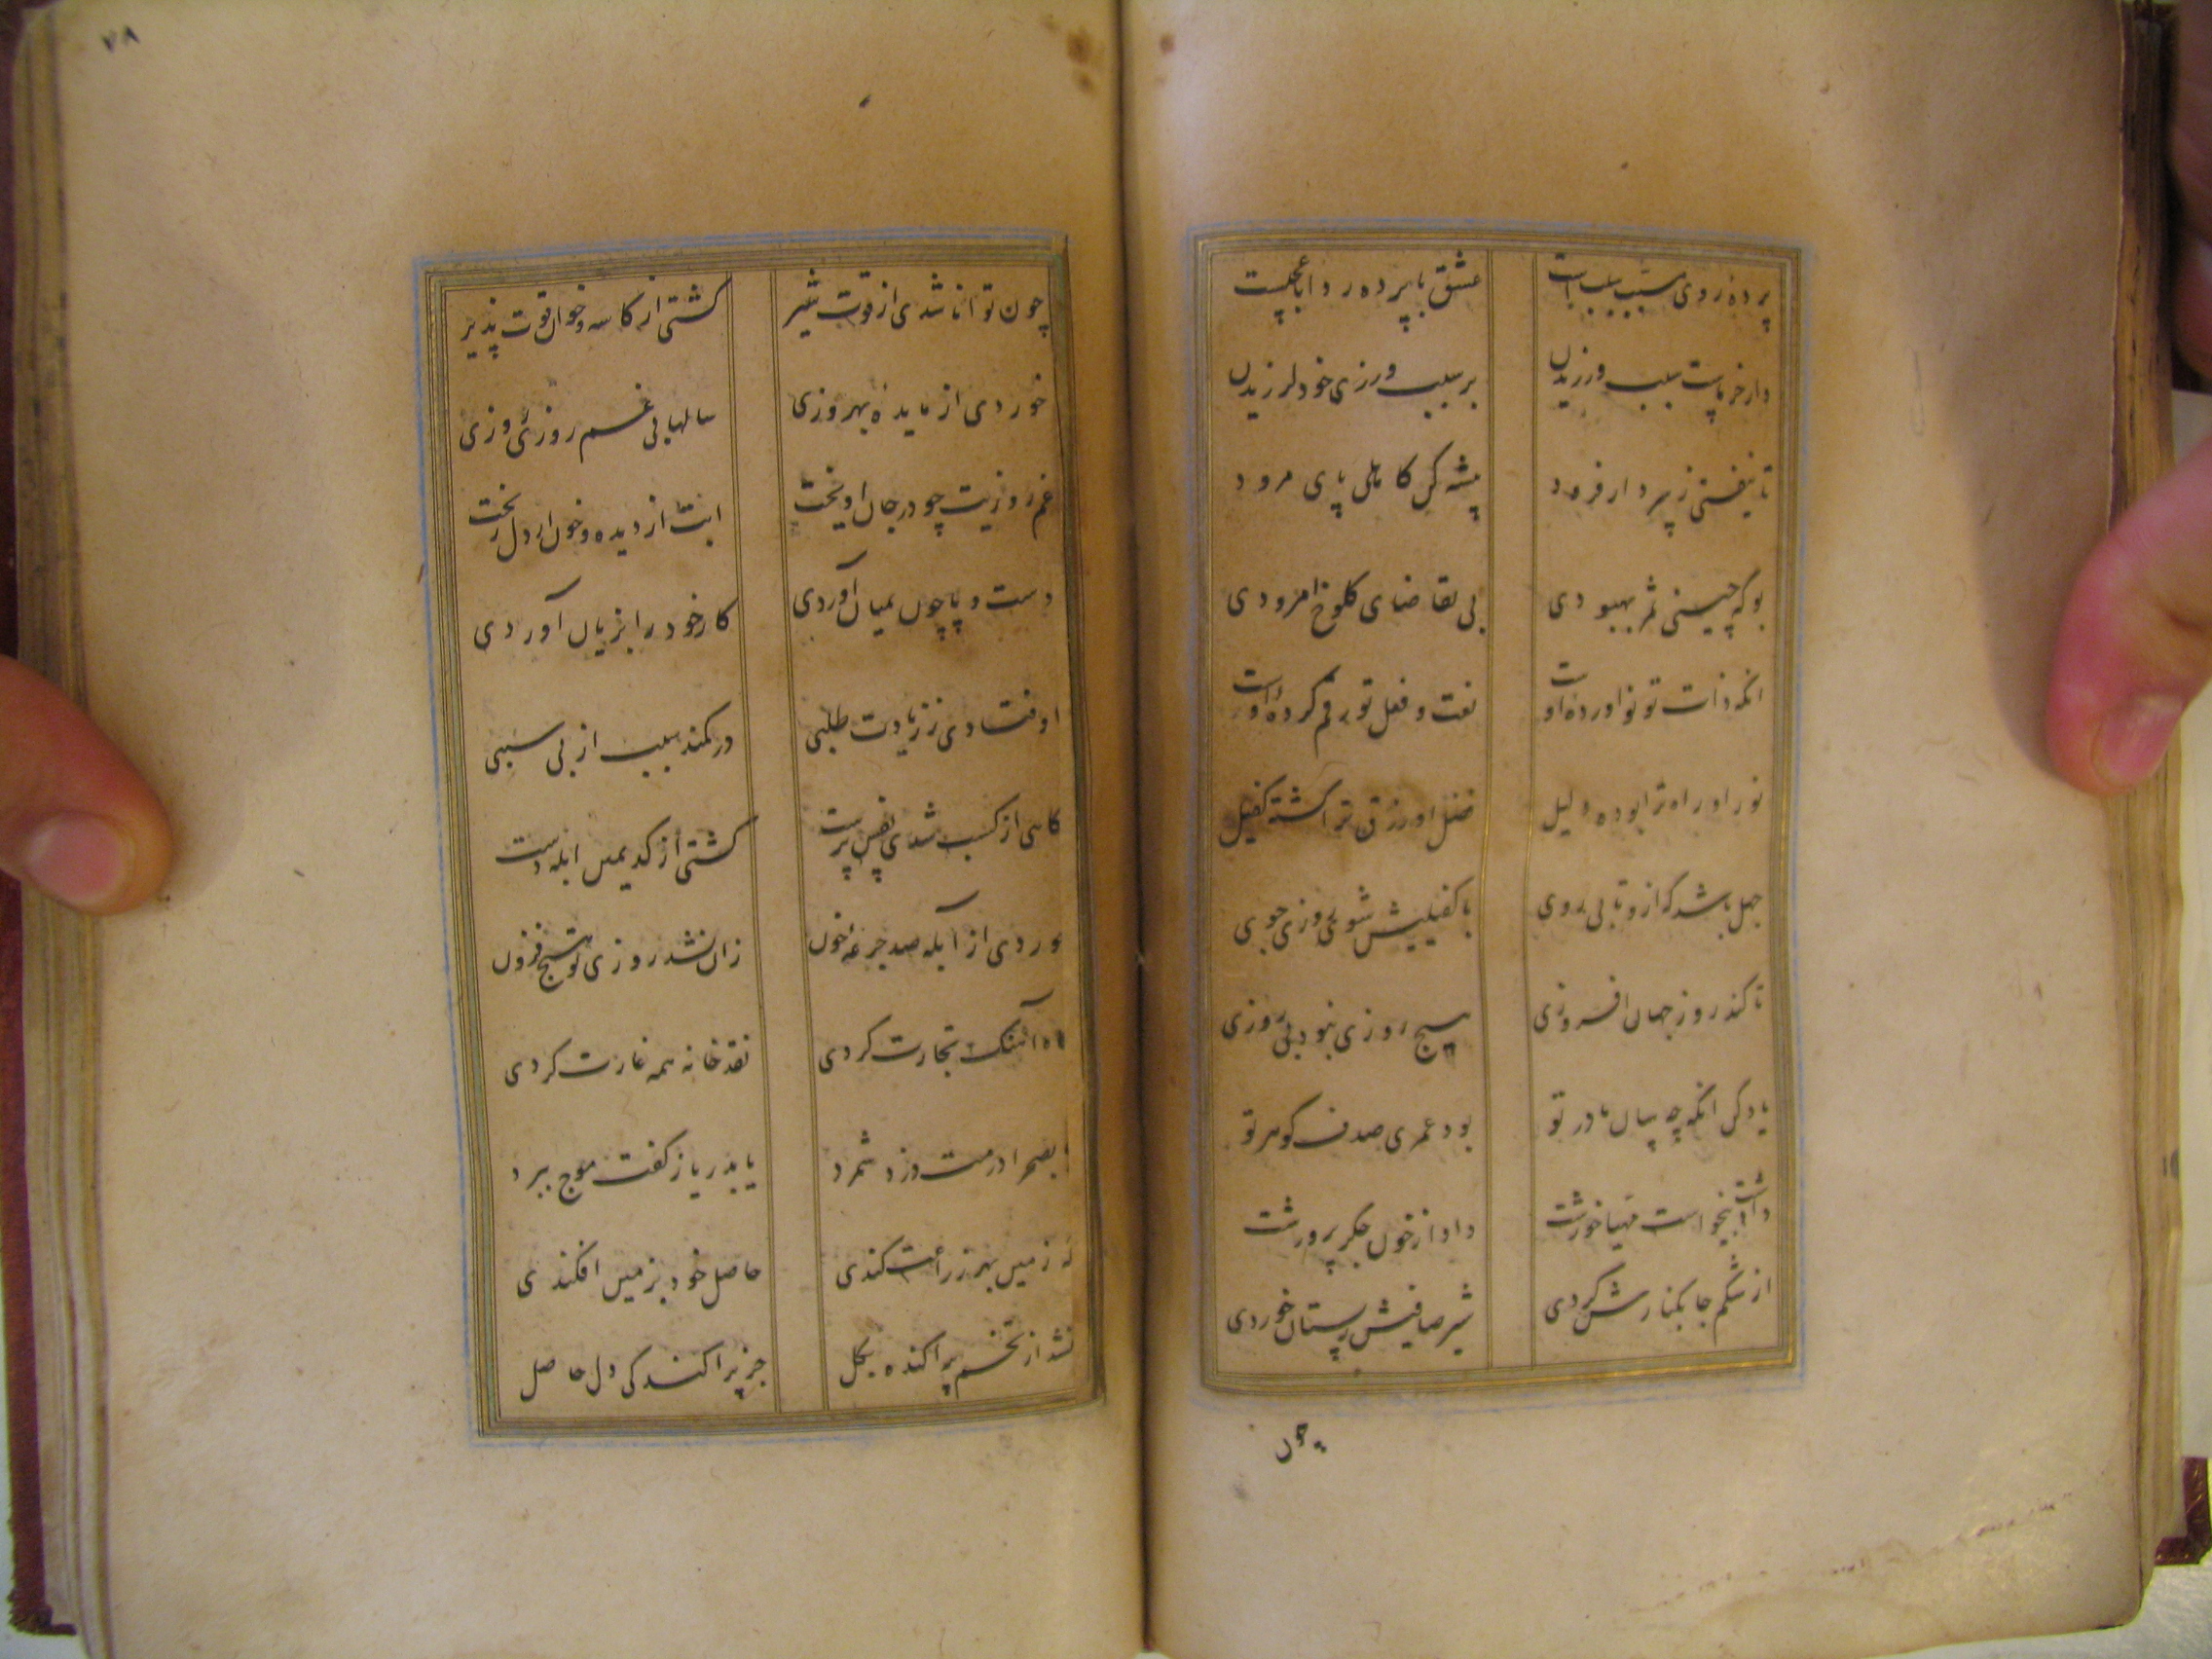 پرده روی سبب سبب است عشق با پرده در داب عجبست
دارخرماست سبب ورزیدن بر سبب ورزی خود لرزیدن
تا نیفتی ز سر دار فرود پیشه کن کاهلی پای مرود
بوکه چینی ثمر بهبودی بی تقاضای کلوخ امرودی
انکه ذات تو نو اورده اوست نعت و فعل تو رقم کرده اوست
نور او راه ترا بوده دلیل فضل او رزق ترا کشته کفیل
جهل باشد که ازو تابی روی با کفیلیش شوی روزی جوی
تا کند روز جهان افروزی هیچ روزی نبود بی روزی
یاد کن انکه چه سان مادر تو بود عمری صدف کوهر تو
داشت بیخواست مهیا خورشت داد از خون جکر پرورشت
از شکم جا بکنارش کردی شیر صافیش ز پستان خوردی
چون
۷۸
چون توانا شدی از قوت شیر کشتی از کاسه و خوان قوت پذیر
خوردی از مایده بهروزی سالها بی غم روزی روزی
غم روزیت چو در جان اویخت ابت از دیده و خون از دل ریخت
دست و پا چون بمیان آوردی کار خود را بزیان آوردی
اوفتادی ز زیادت طلبی در کمند سبب از بی سببی
کاهی از کسب شدی نفس پرست کشتی از کد یمین ابله دست
خوردی از آبله صد جرعه خون زان نشد روزی تو هیچ فزون
کاه آهنک تجارت کردی نقد خانه همه غارت کردی
یا بصحرا درمت دزد شمرد یا بدریا ز کفت موج ببرد
که زمین بهر زراعت کندی حاصل خود بزمین افکندی
نشد از تخم پراکنده بکل جز پراکندکی دل حاصل